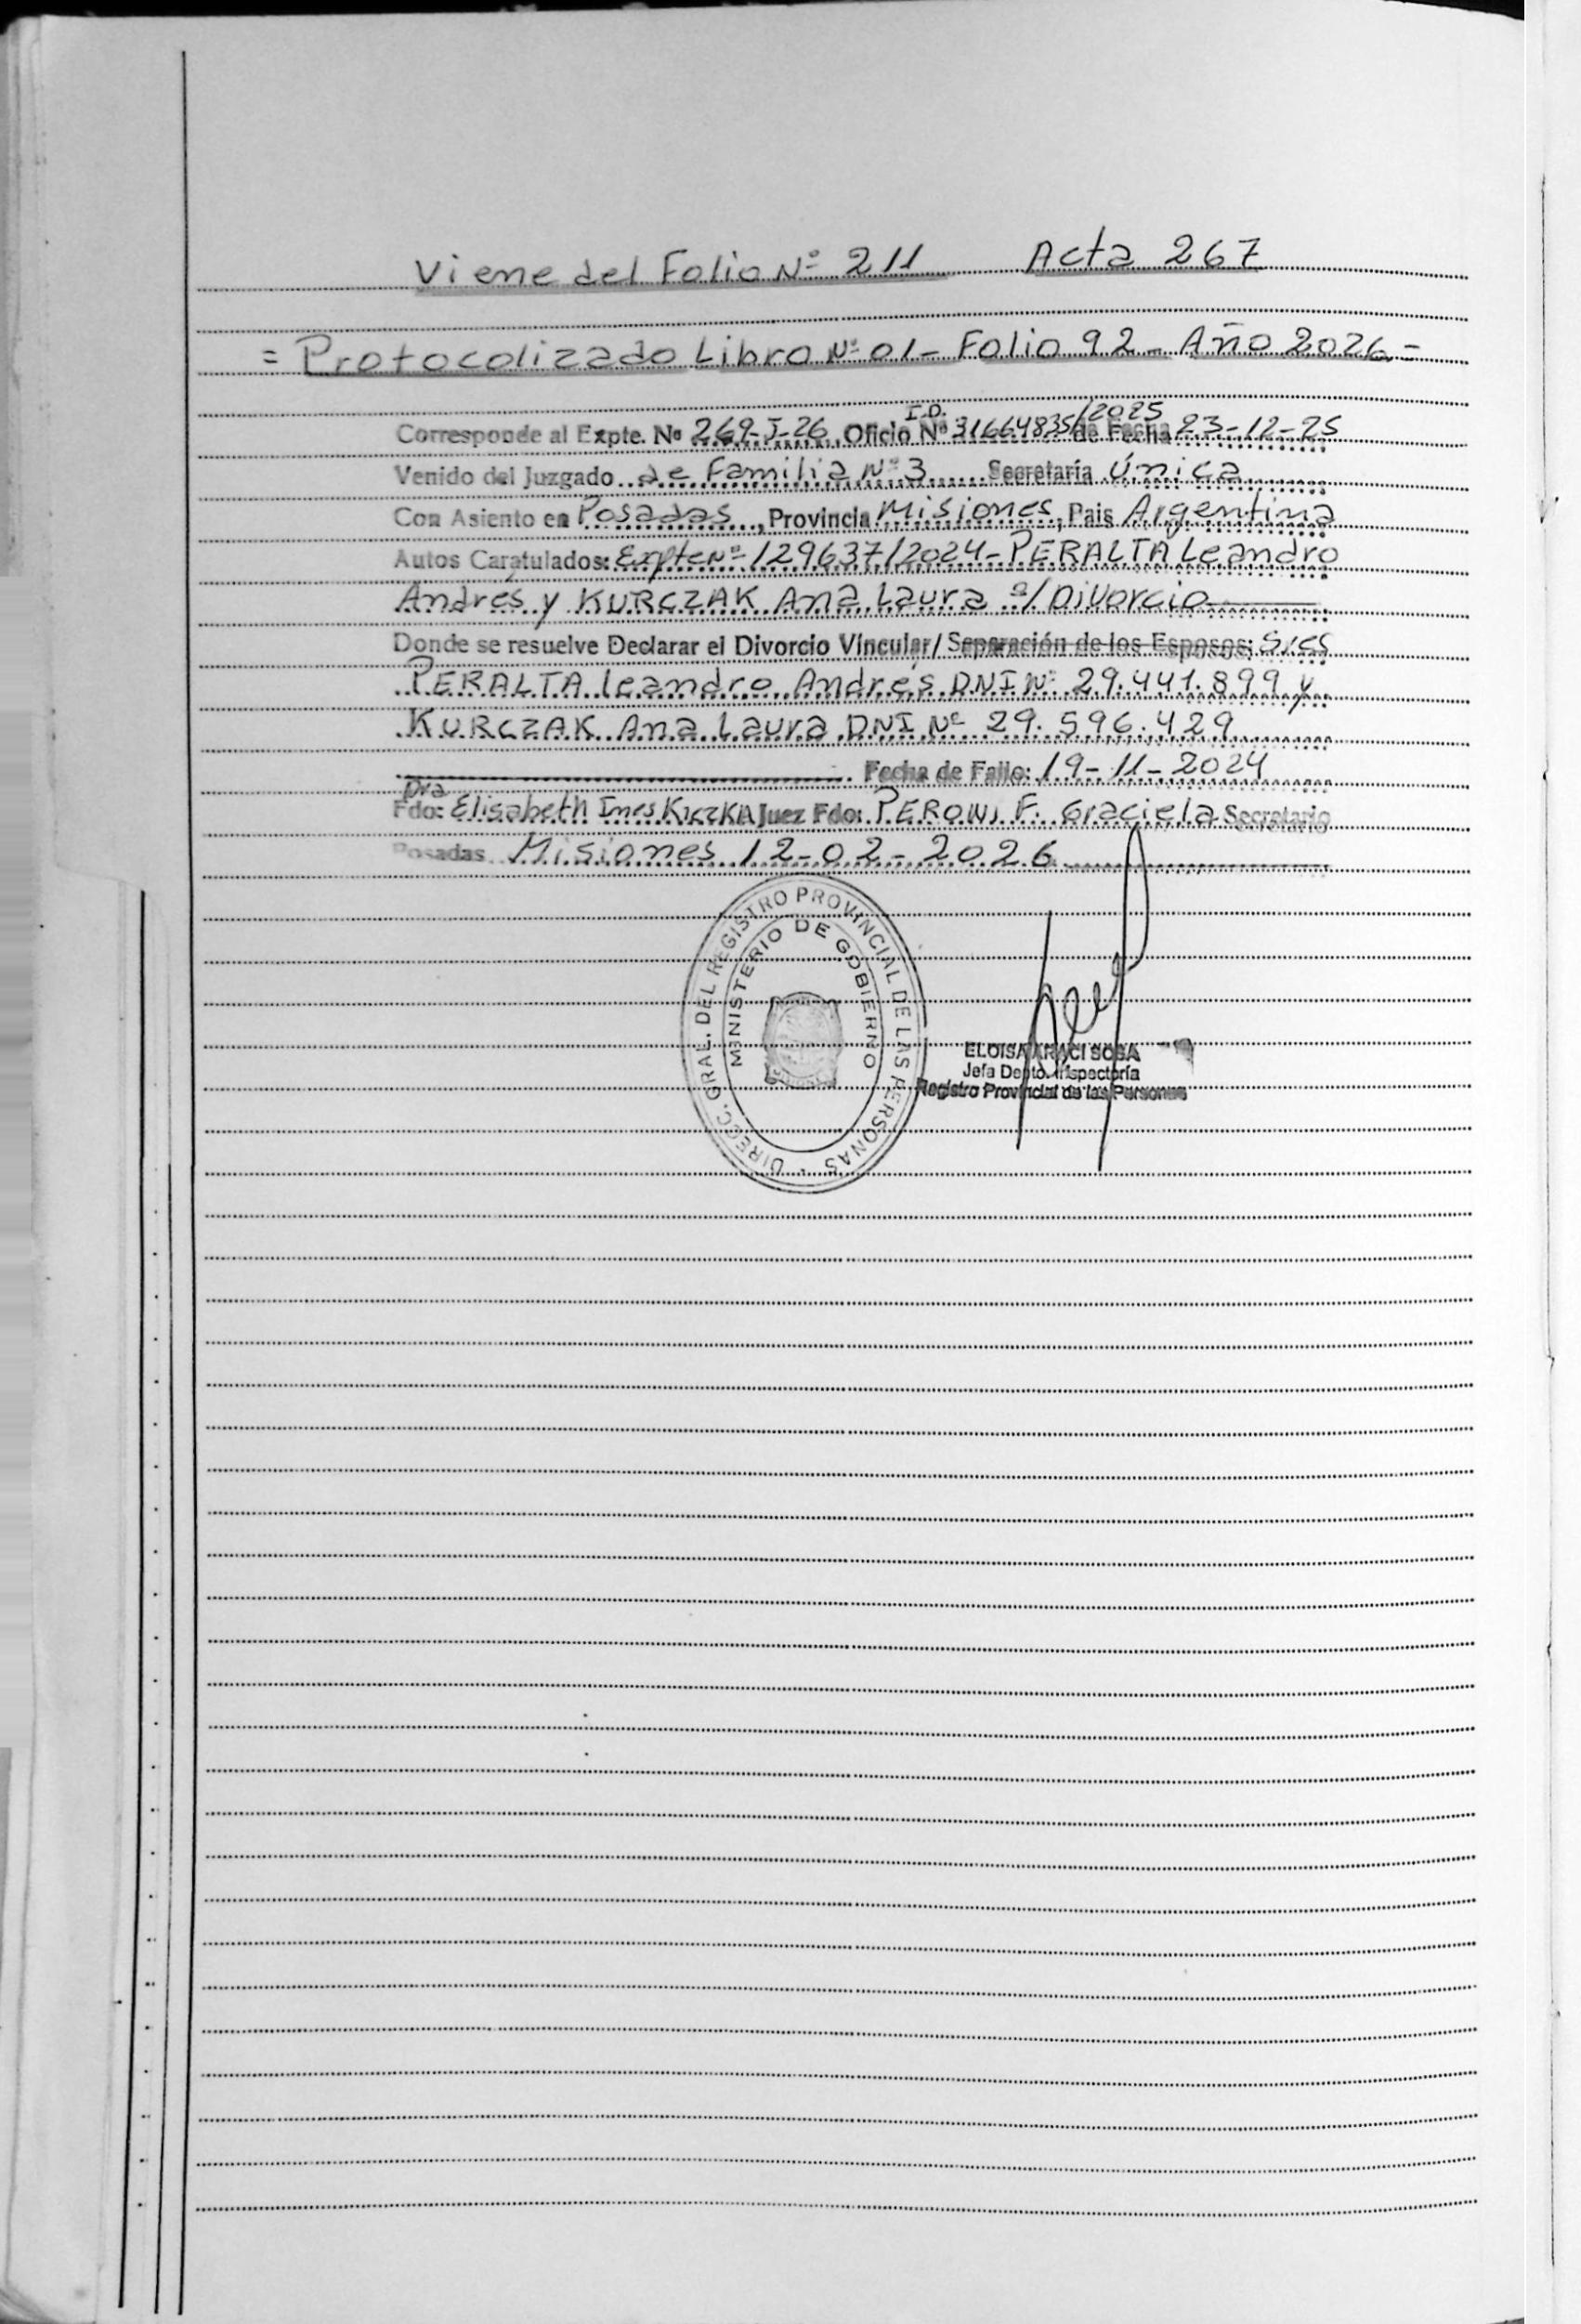 Viene del Folio Nº 211 Acta 267
= Protocolizado Libro Nº 01 - Folio 92 - Año 2026 =
I.D. /2025
Corresponde al Expte. Nº 269-J-26, Oficio Nº 31664835 de Fecha 23-12-25
Venido del Juzgado de Familia Nº 3 Secretaría Única
Con Asiento en Posadas, Provincia Misiones, Pais Argentina
Autos Caratulados: Expte Nº 129637/2024 - PERALTA Leandro
Andres y KURCZAK Ana Laura s/ Divorcio
Donde se resuelve Declarar el Divorcio Vincular/ Separación de los Esposos: Sres
PERALTA Leandro Andrés DNI Nº 29.441.899 y
KURCZAK Ana Laura DNI Nº 29.596.429
Fecha de Fallo: 19-11-2024
Dra
Fdo: Elisabeth Ines Juez Fdo: PERONI F. Graciela Secretario
Posadas Misiones 12-02-2026
DIRECC. GRAL. DEL REGISTRO PROVINCIAL DE LAS PERSONAS
MINISTERIO DE GOBIERNO
ELOISA ARACI SOSA
Jefa Depto. Inspectoría
Registro Provincial de las Personas